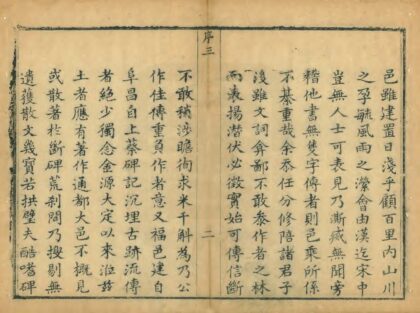 邑雖建置日淺乎顧百里内山川
之孕毓風雨之瀠會由漢迄宋中
豈無人士可表見乃澌滅無聞旁
稽他書無隻字傳者則邑乘所係
不綦重哉余忝任分修陪諸君子
後雖文詞弇鄙不敢叅作者之林
而表揚潛伏必徵實始可傳信斷
序三
二
不敢稍涉瞻徇求米千斛為乃公
作佳傳重負作者意又福邑建自
阜昌自上蔡碑記沉埋古跡流傳
者絶少獨念金源大定以來涖茲
土者應有著作通都大邑不概見
或散著於斷碑荒刹間乃搜剔無
遺獲散文幾寶若拱璧夫酷嗜碑